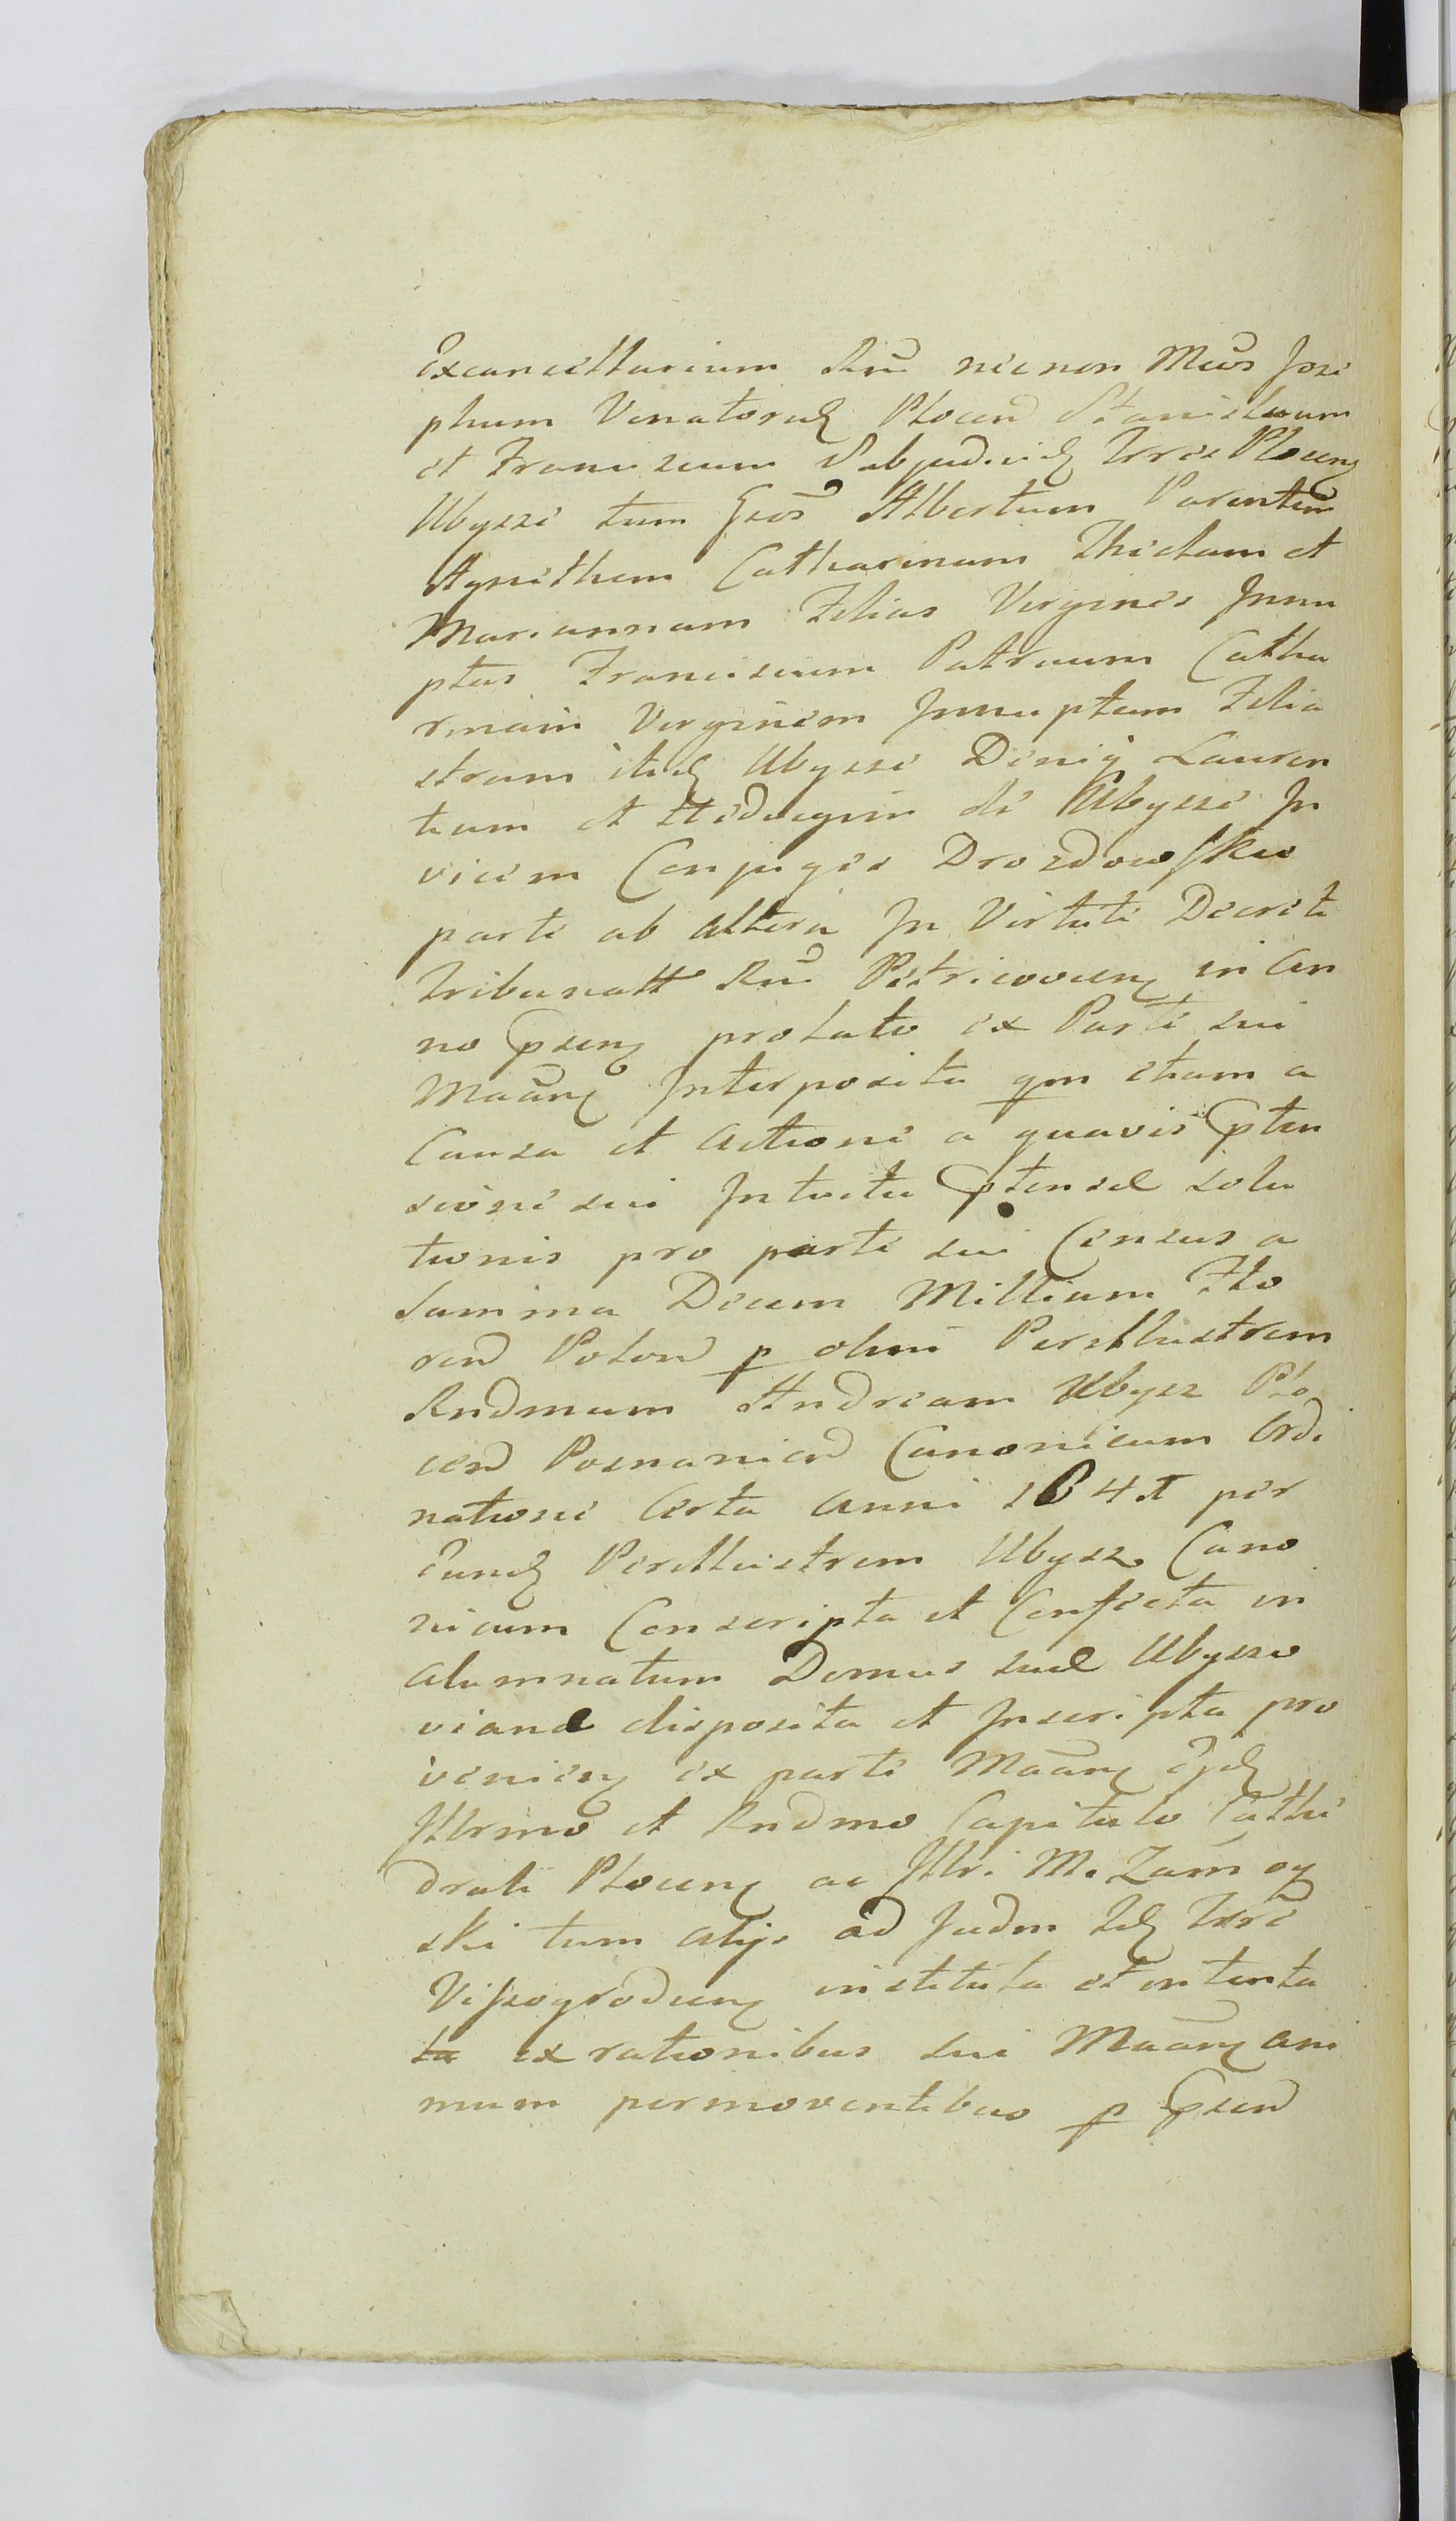 Excancellarium Rni necnon Mcos Jose
phum Venatorid Plocen Stanislaum
et Franciscum Subjudicid Trrae Plocen
Ubysze tum Gsos Albertum Parentem
Agnethem Catharinam Theclam et
Mariannam Filias Virgines Innu
ptas Franciscum Patruum Catha
rinam Virginem Innuptam Filia
stram itid Ubysze Deniq Lauren
tium et Hedvigim de Ubysze In
vicem Conjuges Drozdowskie
parte ab altera In Virtute Decreti
Tribunall Rni Petricoven in An
no Psen prolato ex Parte sui
Maan Interposita qm etiam a
Causa et Actione a quavis Pten
sione sui Intuitu Ptensae solu
tionis pro parte sui Census a
Summa Decem Millium Flo
ren Polon p olim Perillustrem
Rndmum Andream Ubysz Plo
cen Posnanien Canonicum Ordi
natione Certa Anni 1641 per
Eund Perillustrem Ubysz Cano
nicum Conscripta et Confecta in
Alumnatum Domus suae Ubyszo
vianae disposita et Inscripta pro
venien ex parte Maan ejd
Illrmo et Rndmo Capitulo Cathe
drali Plocen ac Illri M. Zamoy
ski tum alijs ad Judm Trre
Viszogroden instituta et intenta
ta ex rationibus sui Maan ani
mum permoventibus p Psen